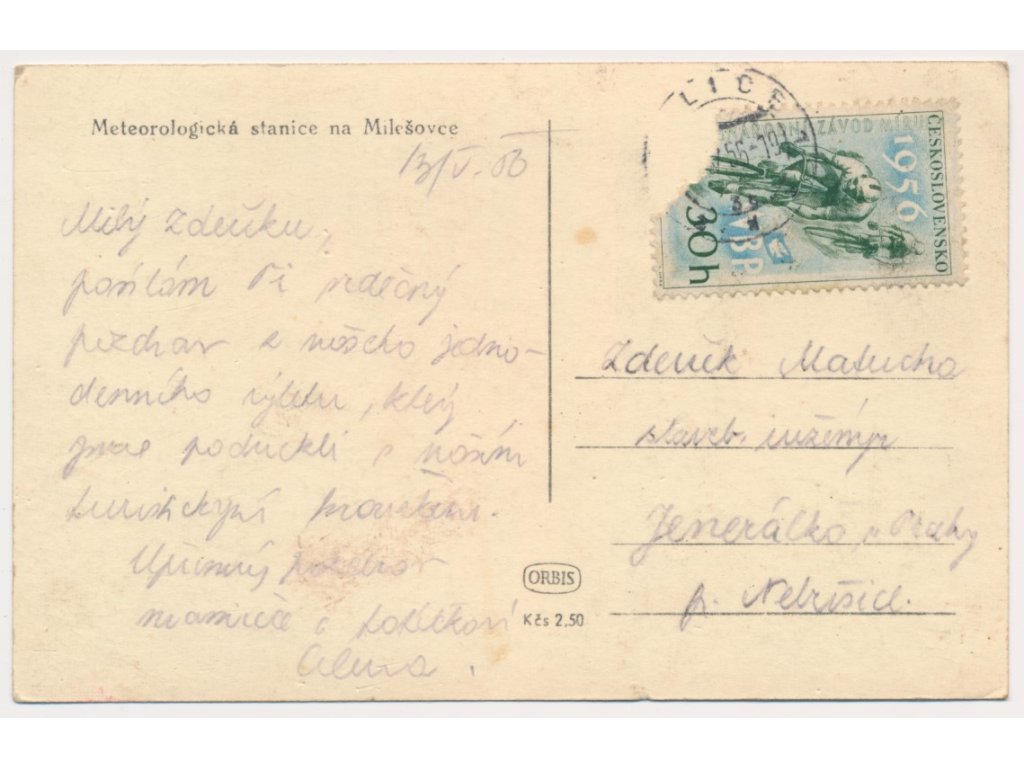 Meteorologická stanice na Milešovce
13/V. 56
Milý Zdeňku,
posílám Ti srdečný
pozdrav z našeho jedno-
denního výletu, který
jsme podnikli s naším
turistickým kroužkem.
Upřímný pozdrav
mamince a tatíčkovi
Alena.
ORBIS
Kčs 2,50
LICE
56-10
ZÁVOD MÍRU
1956
ČESKOSLOVENSKO
30h
WBP
Zdeněk Matucha
staveb. inženýr
Jenerálka, u Prahy
p. Nebušice.